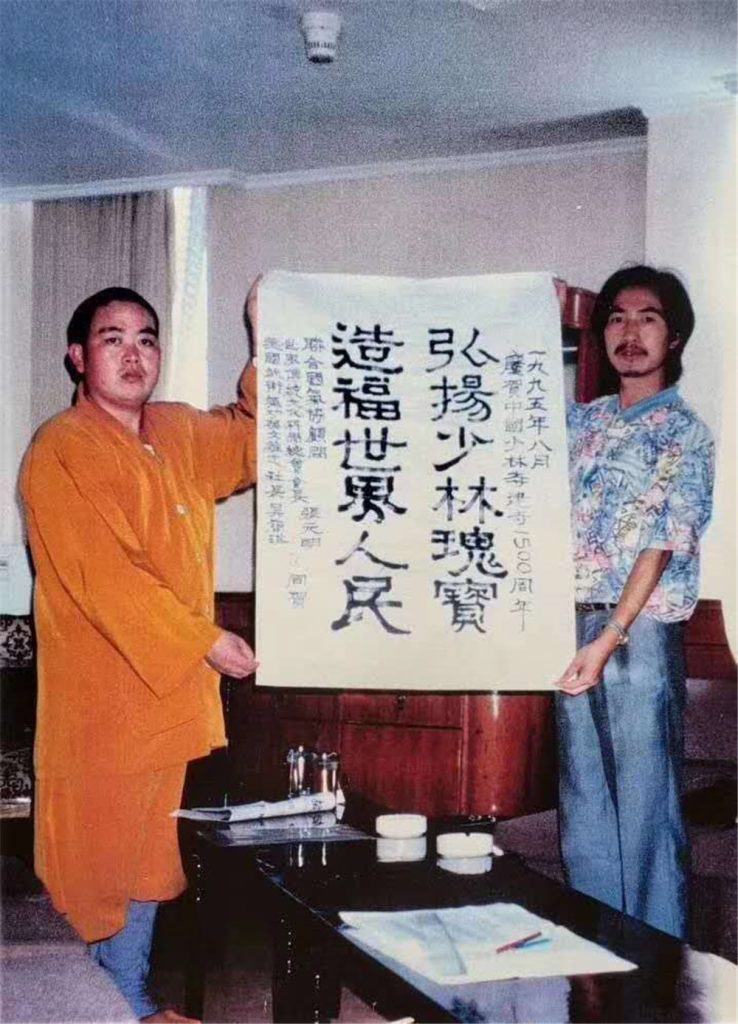 一九九五年八月
慶賀中國少林寺建寺1500周年
弘揚少林瑰寶
造福世界人民
聯合國氣功顧問
世界傳統文化科學總會會長 張元明
美國武術 社長 吳
同賀